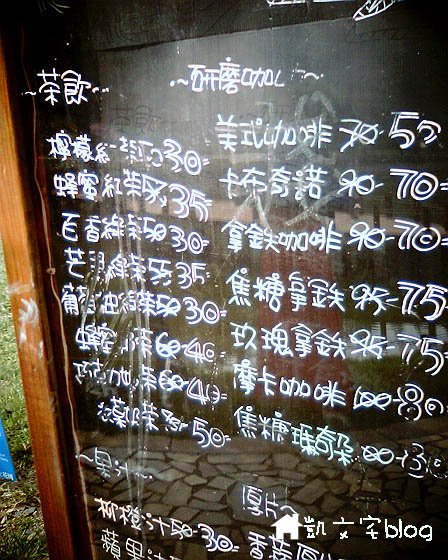 ~茶飲~
檸檬紅茶50 30
蜂蜜紅茶55 35
百香綠茶50 30
芒果綠茶55 35
葡萄柚綠茶50 30
蜂蜜 茶60 40
茶60 40
奶茶 50
~果汁~
柳橙汁50 30
蘋果汁
~研磨咖~
美式咖啡 70 50
卡布奇諾 90 70
拿鐵咖啡 90 70
焦糖拿鐵 95 75
玫瑰拿鐵 95 75
摩卡咖啡 100 80
焦糖瑪奇朵 100
凱文字blog